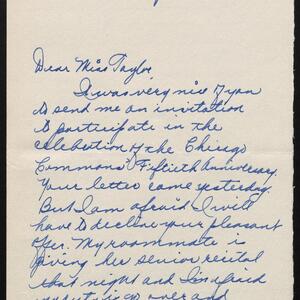 Dear Miss Taylor,
It was very nice of you
to send me an invitation
to participate in the
celebration of the Chicago
Commons' Fiftieth Anniversary.
Your letter came yesterday.
But I am afraid I will
have to decline your pleasant
offer. My roommate is
giving her senior recital
that night and I'm afraid
over and